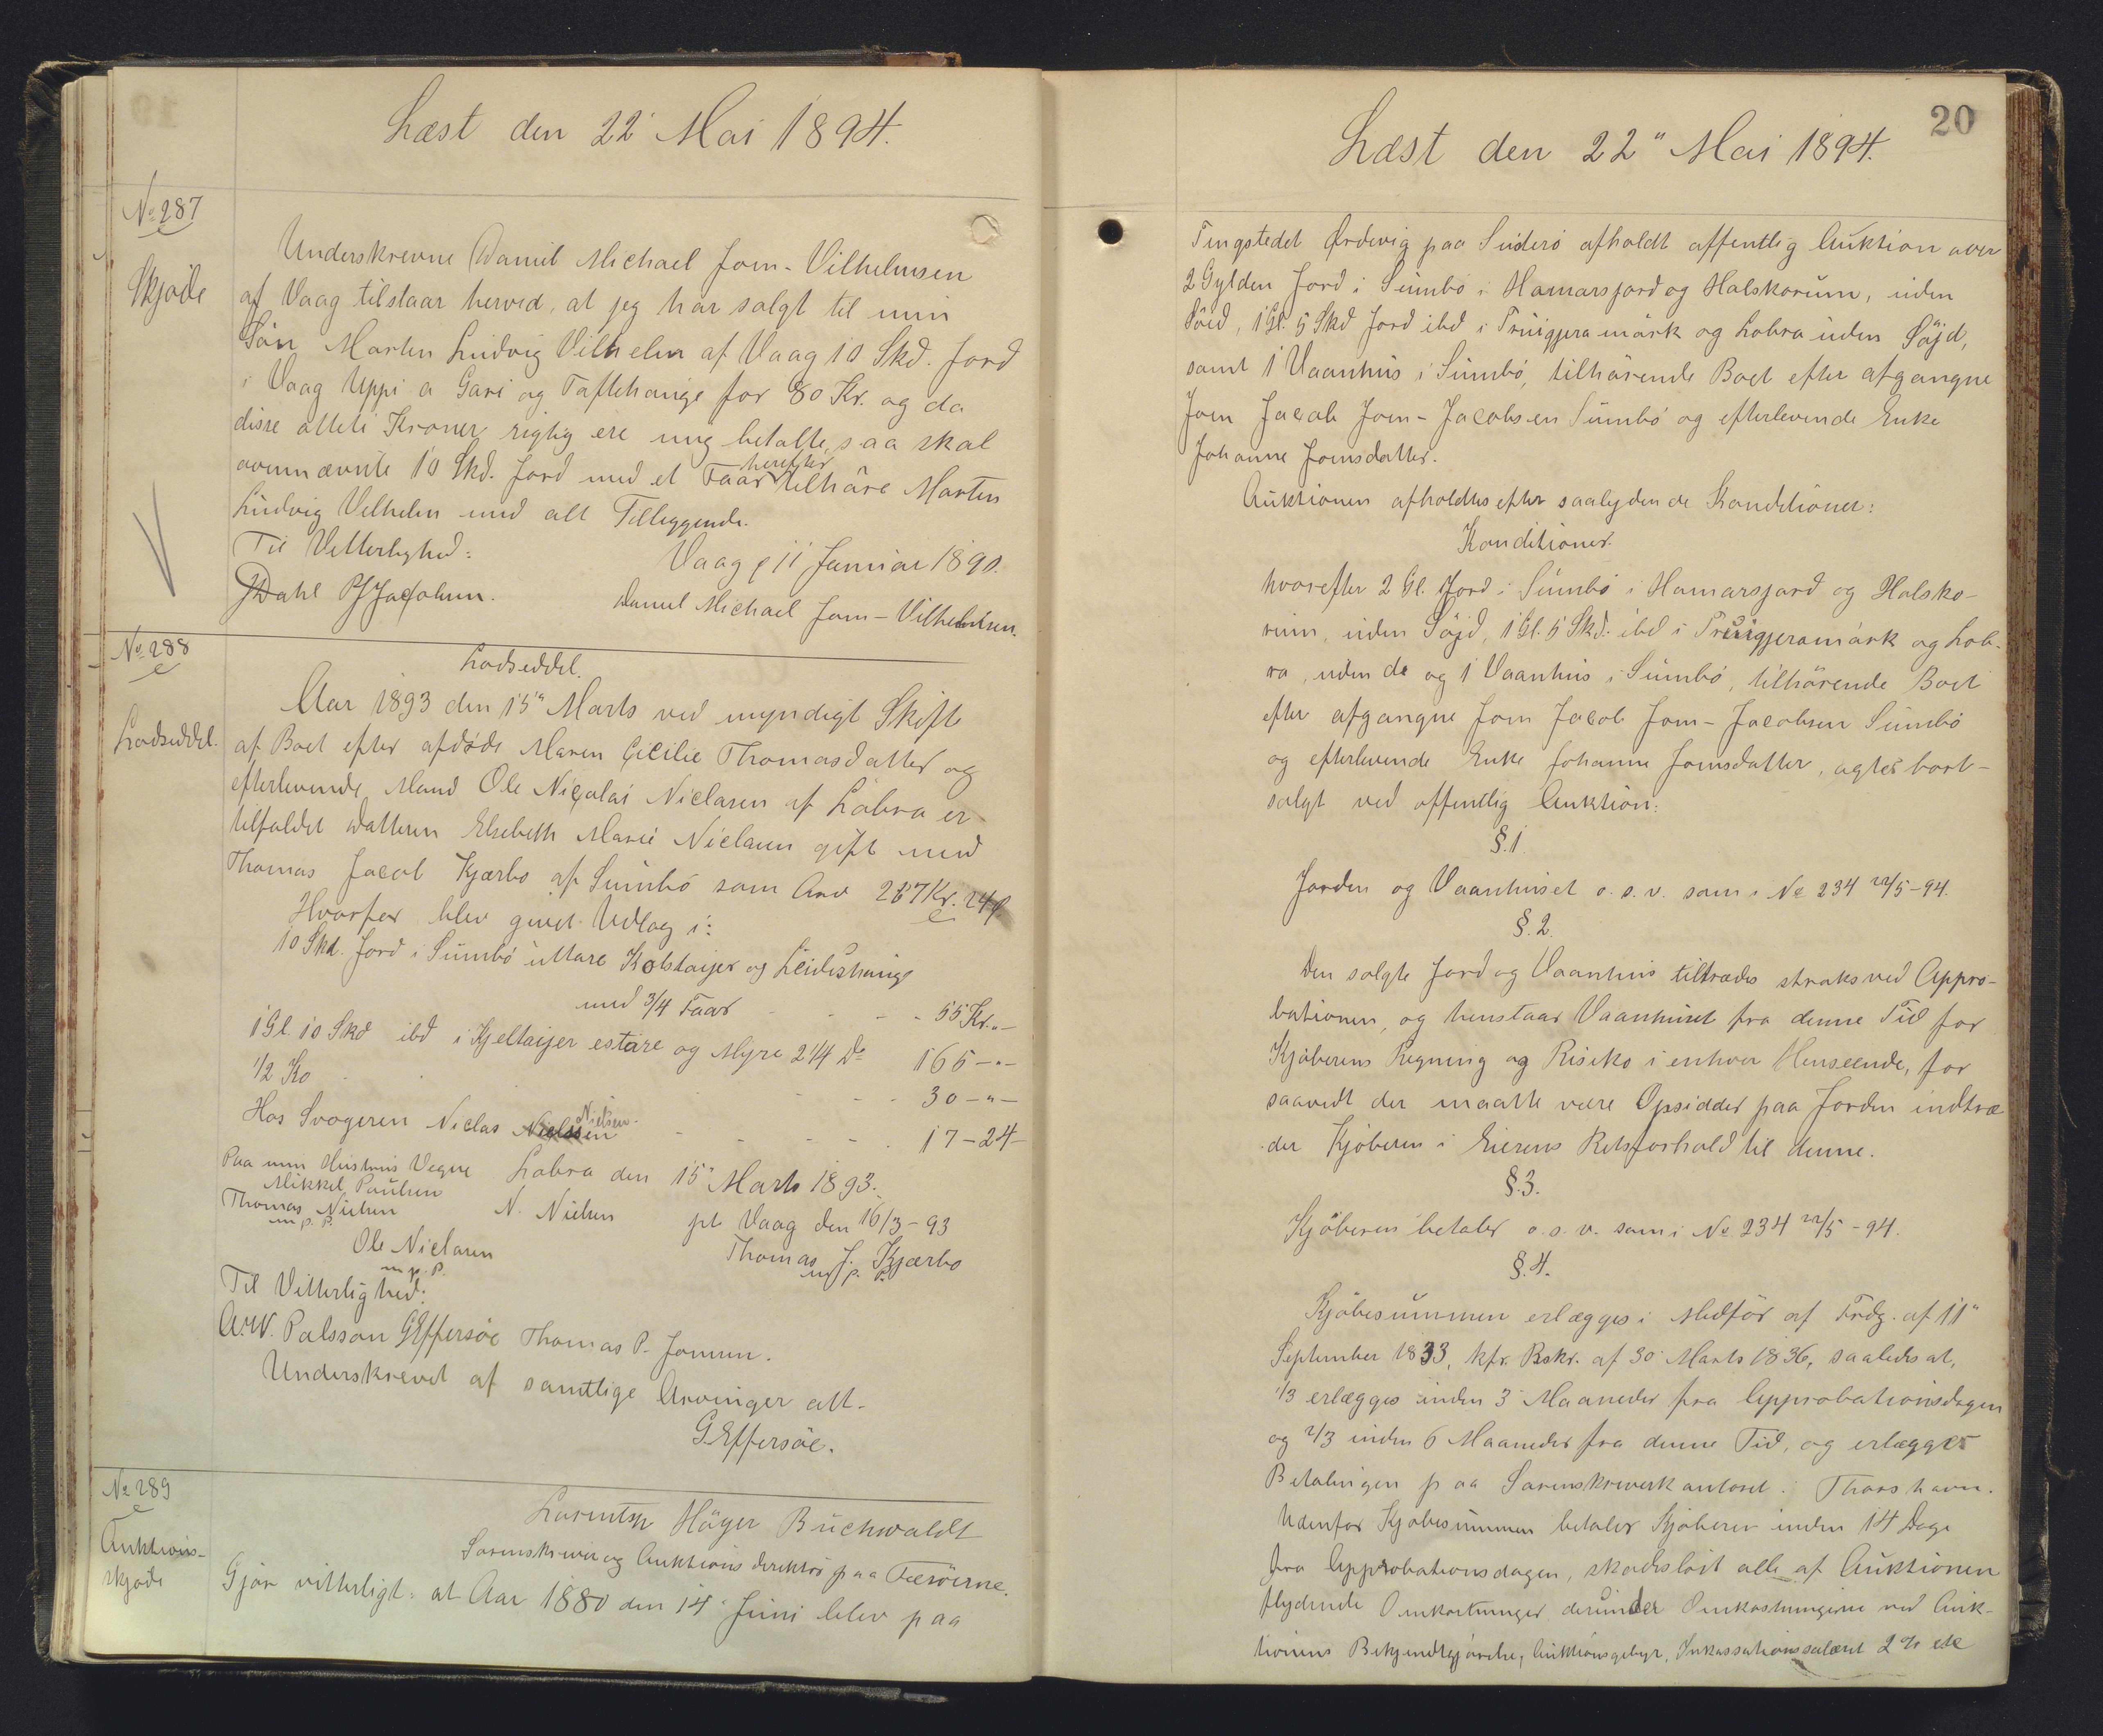 Læst den 22' Mai 1894.
No 287
Skjøde
Underskrevne Daniel Michael Joen-Vilhelmsen
af Vaag tilstaar herved, at jeg har solgt til min
Søn Morten Ludvig Vilhelm af Vaag 10 Skd. Jord
i Vaag Uppi a Gari og Taftehauge for 80 Kr. og da
disse otteti Kroner rigtig ere mig betalte, saa skal
ovennævnte 10 Skd. Jord med et Faar herefter tilhøre Morten
Ludvig Vilhelm med alt Tilliggende.
Til Vitterlighed:
Vaag p 11 Januar 1890.
JDahl PJJacobsen.
Daniel Michael Joen-Vilhelmsen.
No 288
Lodseddel.
Lodseddel.
Aar 1893 den 15" Marts ved myndigt Skifte
af Boet efter afdøde Maren Cicilie Thomasdatter og
efterlevende Mand Ole Nicolai Niclasen af Lobra er
tilfaldet Datteren Elsebeth Marie Niclasen gift med
Thomas Jacob Kjærbo af Sumbø som Arv 267 Kr. 24 p.
Hvorfor blev givet Udlæg i:
10 Skd. Jord i Sumbø uttare Kolstaijer og Leidishauge
med 3/4 Faar - - - 55 Kr. " -
1 Gl. 10 Skd ibd i Kjeltaijer estare og Myre 2 1/4 Do 165 - " -
1/2 Ko - - - 30 - " -
Hos Svogeren Niclas Nielsen Nielsen - - - - 17 - 24 -
Lobra den 15" Marts 1893.
Paa min Hustrus Vegne
Mikkel Poulsen
Thomas Nielsen
m. p. P.
N. Nielsen
pt Vaag den 16/3 - 93
Ole Niclasen
m. p. P.
Thomas J. Kjærbo
m. p. P.
Til Vitterlighed:
A.W. Palsson GEffersøe Thomas P. Joensen.
Underskrevet af samtlige Arvinger att.
GEffersøe.
No 289
Auktions-
skjøde
Lorentz Høyer Buchwaldt
Sorenskriver og Auktionsdirektør paa Færøerne.
Gjør vitterligt: at Aar 1880 den 14' Juni blev paa
20
Læst den 22" Mai 1894.
Tingstedet Ørdevig paa Suderø afholdt offentlig Auktion over
2 Gylden Jord i Sumbø i Hamarsjord og Halskorum, uden
Søid, 1 Gl. 5 Skd Jord ibd i Truigjera mårk og Lobra uden Søjd,
samt 1 Vaanhus i Sumbø, tilhørende Boet efter afgangne
Joen Jacob Joen-Jacobsen Sumbø og efterlevende Enke
Johanne Joensdatter.
Auktionen afholdtes efter saalydende Konditioner:
Konditioner.
hvorefter 2 Gl. Jord i Sumbø i Hamarsjord og Halsko-
rum, uden Søjd, 1 Gl. 5 Skd. ibd i Truigjeramårk og Lob-
ra, uden do og 1 Vaanhus i Sumbø, tilhørende Boet
efter afgangne Joen Jacob Joen-Jacobsen Sumbø
og efterlevende Enke Johanne Joensdatter, agtes bort-
solgt ved offentlig Auktion:
§.1.
Jorden og Vaanhuset o. s. v. som i No 234 22/5-94.
§.2.
Den solgte Jord og Vaanhus tiltrædes straks ved Appro-
bationen, og henstaar Vaanhuset fra denne Tid for
Kjøberens Regning og Risiko i enhver Henseende, for
saavidt der maatte være Opsidder paa Jorden indtræ-
der Kjøberen i Eierens Retsforhold til denne.
§.3.
Kjøberen betaler o. s. v. som i No 234 22/5-94.
§.4.
Kjøbesummen erlægges i Medfør af Frdg. af 11"
September 1833, kfr. Bskr. af 30' Marts 1836, saaledes at,
1/3 erlægges inden 3 Maaneder fra Approbationsdagen
og 2/3 inden 6 Maaneder fra denne Tid, og erlægges
Betalingen paa Sorenskriverkontoret i Thorshavn.
Udenfor Kjøbesummen betaler Kjøberen inden 14 Dage
fra Approbationsdagen, skadesløst alle af Auktionen
flydende Omkostninger derunder Omkostningerne ved Auk-
tionens Bekjendtgjørelse, Auktionsgebyr, Inkassationssalæret 2 % etc